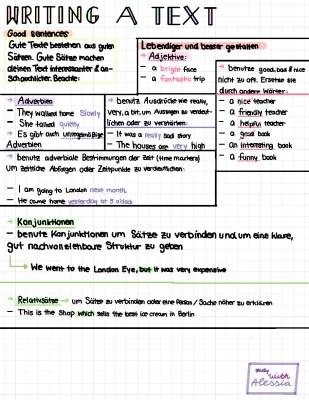 WRITING A TEXT
Good sentences
Gute Texte bestehen aus guten
Sätzen. Gute Sätze machen
deinen Text interessanter & an-
schaulicher. Beachte:
Lebendiger und besser gestalten
→ Adjektive:
- a bright face
- a fantastic trip
→ benutze good, bad & nice
nicht zu oft. Ersetze sie
durch andere Wörter:
- a nice teacher
- a friendly teacher
- a helpful teacher
- a good book
- an interesting book
- a funny book
→ Adverbien
- They walked home Slowly
- She talked quietly
→ Es gibt auch unregelmäßige
Adverbien
→ benutz Ausdrücke wie really,
very, a bit, um Aussagen zu verdeut-
lichen oder zu verstärken:
- It was a really bad story
- The houses are very high
→ benutze adverbiale Bestimmungen der Zeit (time markers)
um zeitliche Abfolgen oder Zeitpunkte zu verdeutlichen:
- I am going to London next month.
- He came home yesterday at 5 o'clock
→ Konjunktionen
- benutze Konjunktionen um Sätze zu verbinden und um eine klare,
gut nachvollziehbare Struktur zu geben
→ We went to the London Eye, but it was very expensive
→ Relativsätze → um Sätze zu verbinden oder eine Person / Sache näher zu erklären
- This is the Shop which sells the best ice cream in Berlin
study
with
Alessia